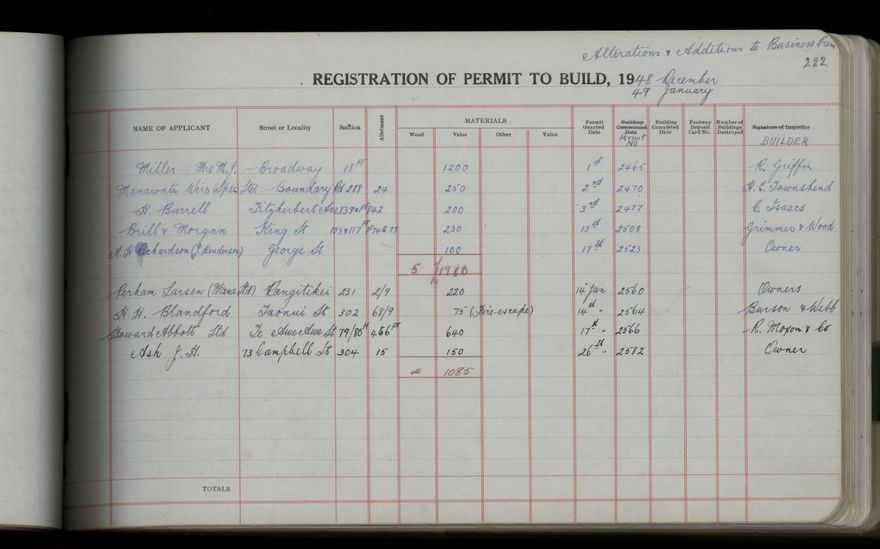 Alterations & Additions to Business Prem
222
REGISTRATION OF PERMIT TO BUILD, 1948 December
49 January
NAME OF APPLICANT Street or Locality Section Allotment MATERIALS Wood Value Other Value Permit Granted Date Building Commenced Date Permit No Building Completed Date Footway Deposit Card No. Number of Buildings Destroyed Signature of Inspector BUILDER
Miller Mrs M. J. Broadway 18 Pt 1200 1st 2465 R. Griffin
Manawatu Ltd Boundary Rd 288 24 250 2nd 2470 H. E. Townshend
H. Burrell Fitzherbert Ave 842 200 3rd 2477 C. Isaacs
Brill & Morgan King St 230 13th 2508 Grimmer & Wood
A. H. (J. Henderson) George St 100 17th 2523 Owner
5 1980
Larsen (Mana Ltd) Rangitikei 231 2/9 220 14th Jan 2560 Owners
H. H. Blandford Taonui St 302 68/9 75 (Fire escape) 14th " 2564 Burson & Webb
Howard Abbott Ltd Te Awe Awe St 79/80 Pt 640 17th " 2566 R. Moxon & Co
Ash J. H. 73 Campbell St 304 15 150 26th " 2582 Owner
4 1085
TOTALS